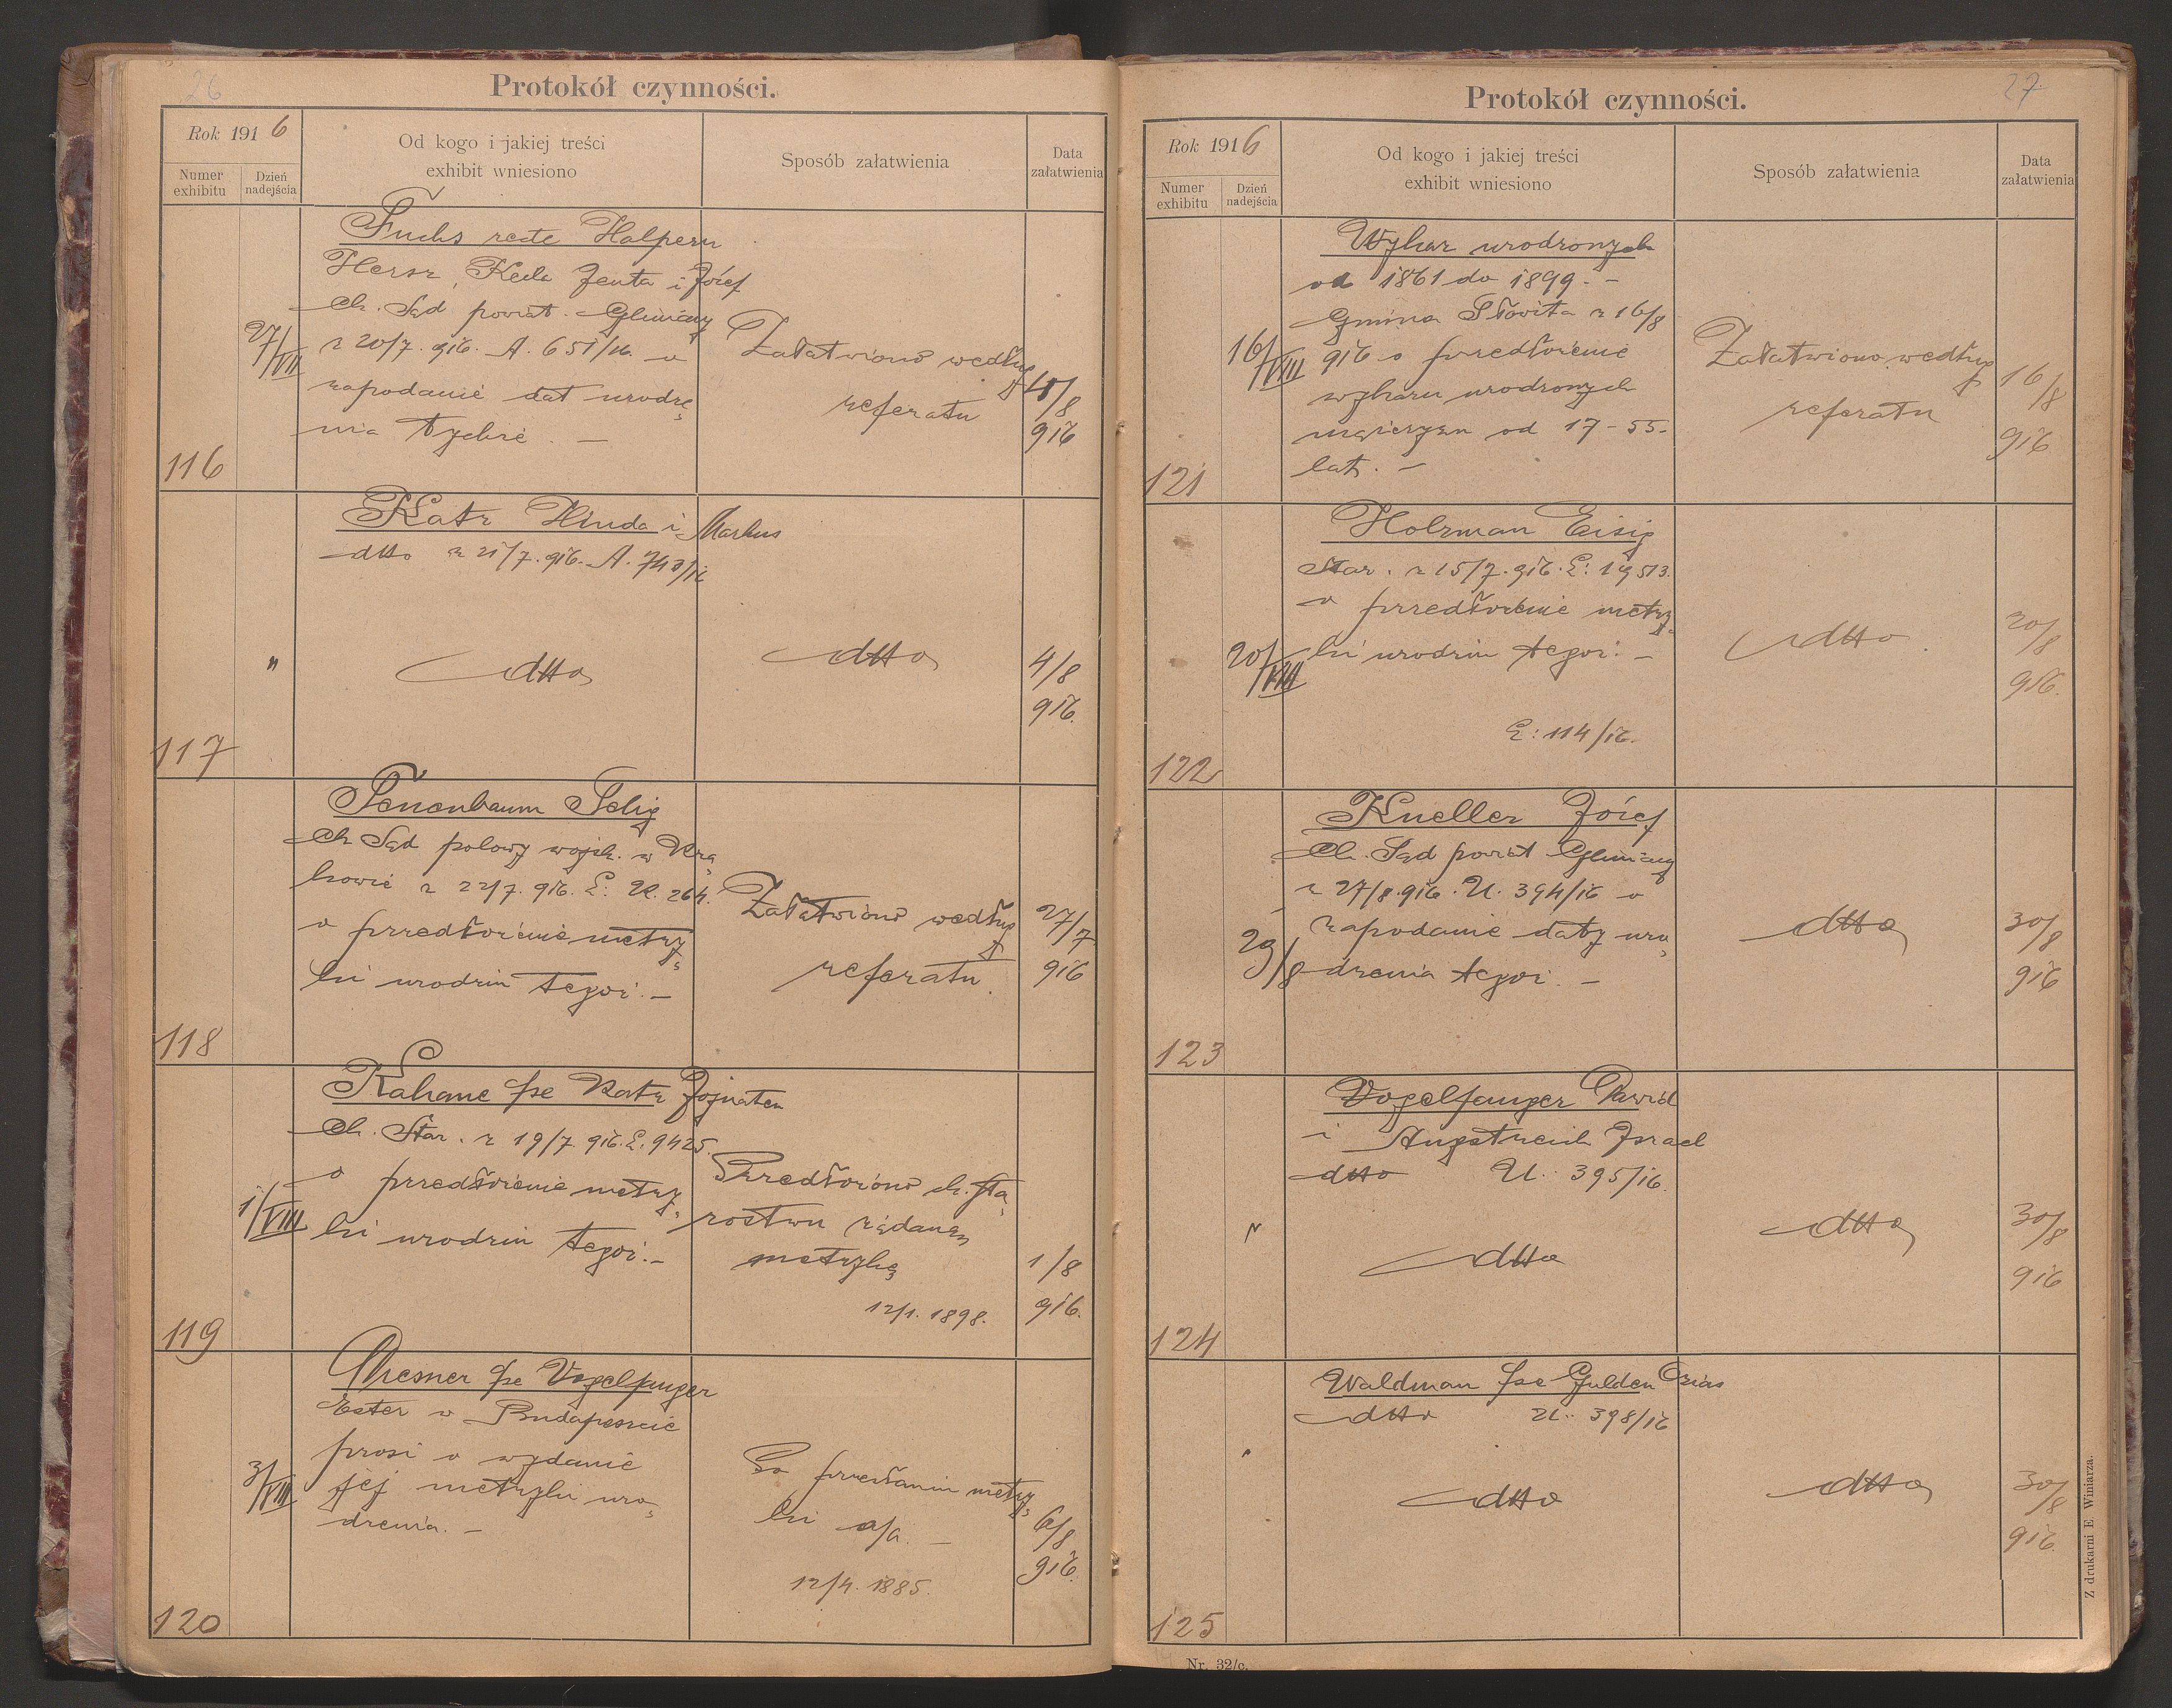 26
Protokół czynności.
Rok 1916
Numer exhibitu
Dzień nadejścia
Od kogo i jakiej treści
exhibit wniesiono
Sposób załatwienia
Data
załatwienia
116
27/VII
Fuchs recte Halpern
Hersz, Keila Jenta i Józef
Ck. Sąd powiat. Gliniany
z 20/7. 916. A. 651/16. o
zapodanie dat urodze
nia tychże. —
Załatwiono według
referatu
8
916
117
"
Katz Hinda i Markus
dtto z 21/7. 916. A. 743/16
dtto
dtto
4/8
916.
118
Tenenbaum Selig
Ck Sąd polowy wojsk. w Kra
kowie z 22/7. 916. L: U. 264.
o przedłożenie metry
ki urodzin tegoż. —
Załatwiono według
referatu.
27/7
916
119
1/VIII
Kahane fse Katz
Ck. Star. z 19/7 916. L. 9425.
o przedłożenie metry
ki urodzin tegoż. —
Przedłożono ck. sta
rostwu żądaną
metrykę
12/1. 1898.
1/8
916.
120
3/VIII
Dresner fse Vogelfanger
Ester w Budapeszcie
prosi o wydanie
jej metryki uro
dzenia. —
Po przesłaniu metry
ki a/a. —
12/4. 1885.
6/8
916.
27
Protokół czynności.
Rok 1916
Numer exhibitu
Dzień nadejścia
Od kogo i jakiej treści
exhibit wniesiono
Sposób załatwienia
Data
załatwienia
121
16/VIII
Wykaz urodzonych
od 1861 do 1899. —
Gmina Słowita z 16/8
916 o przedłożenie
wykazu urodzonych
mężczyzn od 17-55.
lat. —
Załatwiono według
referatu
16/8
916
122
20/VIII
Holzman Eisig
Star. z 15/7. 916. L: 19513.
o przedłożenie metry
ki urodzin tegoż. —
L: 114/16.
dtto
20/8
916.
123
29/8
Kneller Józef
Ck. Sąd powiat Gliniany
z 27/8. 916. U. 394/16 o
zapodanie daty uro
dzenia tegoż. —
dtto
30/8
916
124
"
Vogelfanger Dawid
i Angstreich Israel
dtto U.: 395/16.
dtto
dtto
30/8
916
125
"
Waldman fse Gulden Ozias
dtto U.: 398/16
dtto
dtto
30/8
916.
Nr. 32/c.
Z drukarni E. Winiarza.